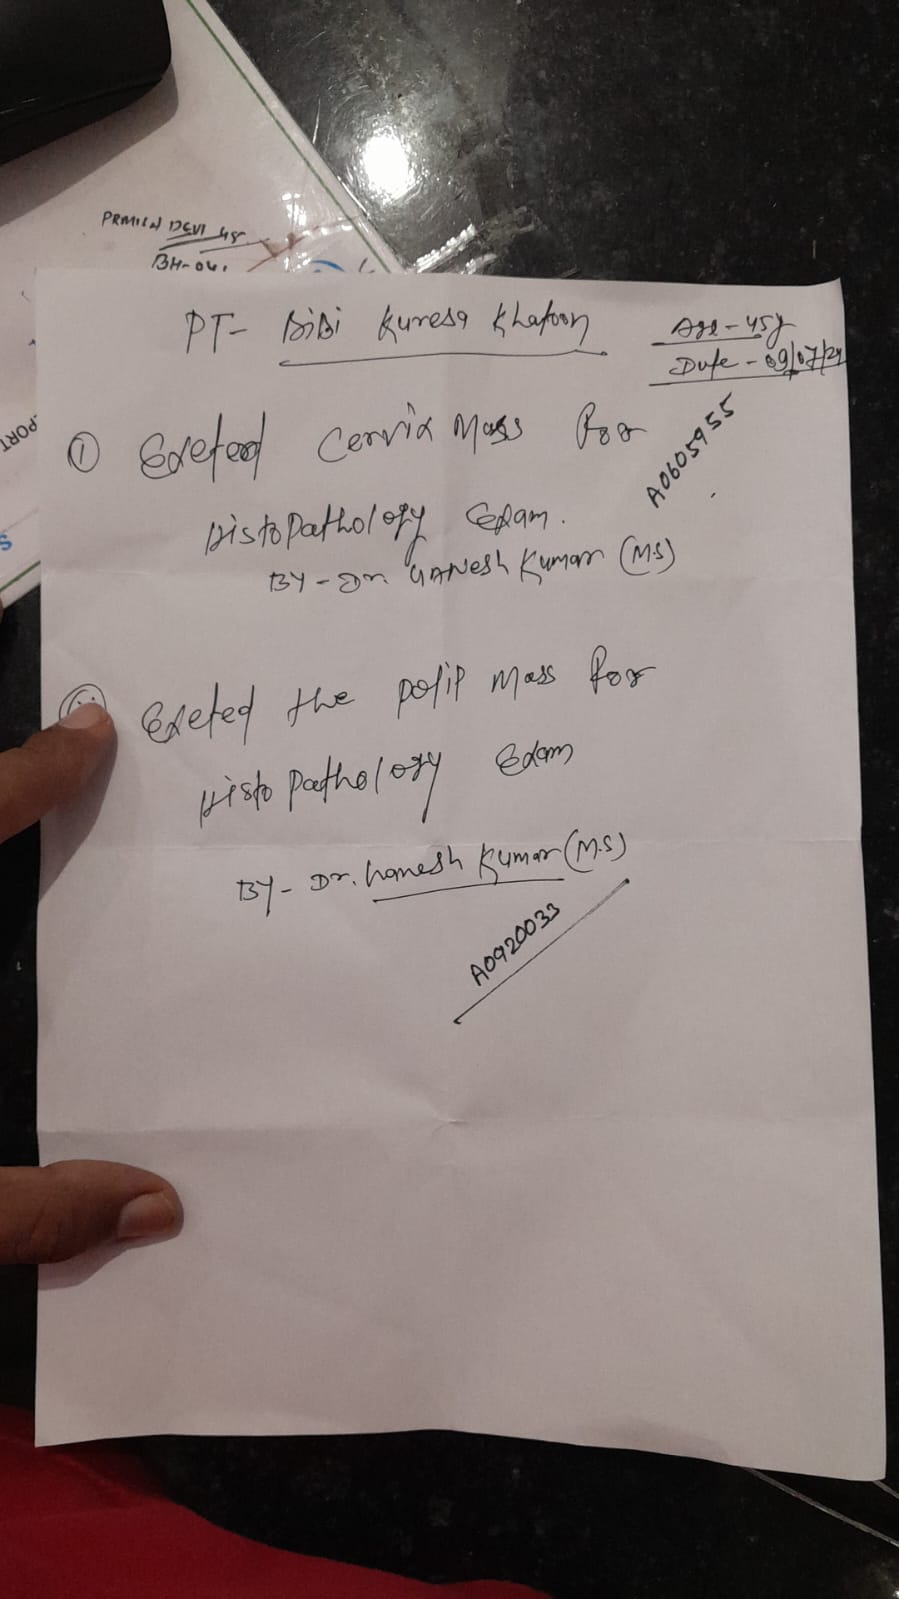 PRMILA DEVI 48
BH-04.
EPORT
S
PT- BiBi Kuresa Khatoon
Age - 45y
Date - 09/07/24
① Exeted Cervix Mass For
A0605955
HistoPathology Exam.
BY - Dr. GANesh Kumar (M.S)
Exeted the polip Mass For
Histo Pathology Exam
BY - Dr. Ganesh Kumar (M.S)
A0920033